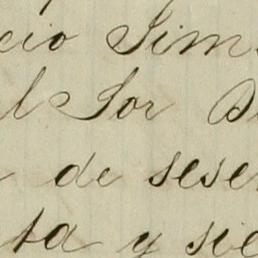 cio Sim
l Sor D
de sese
ta y sie